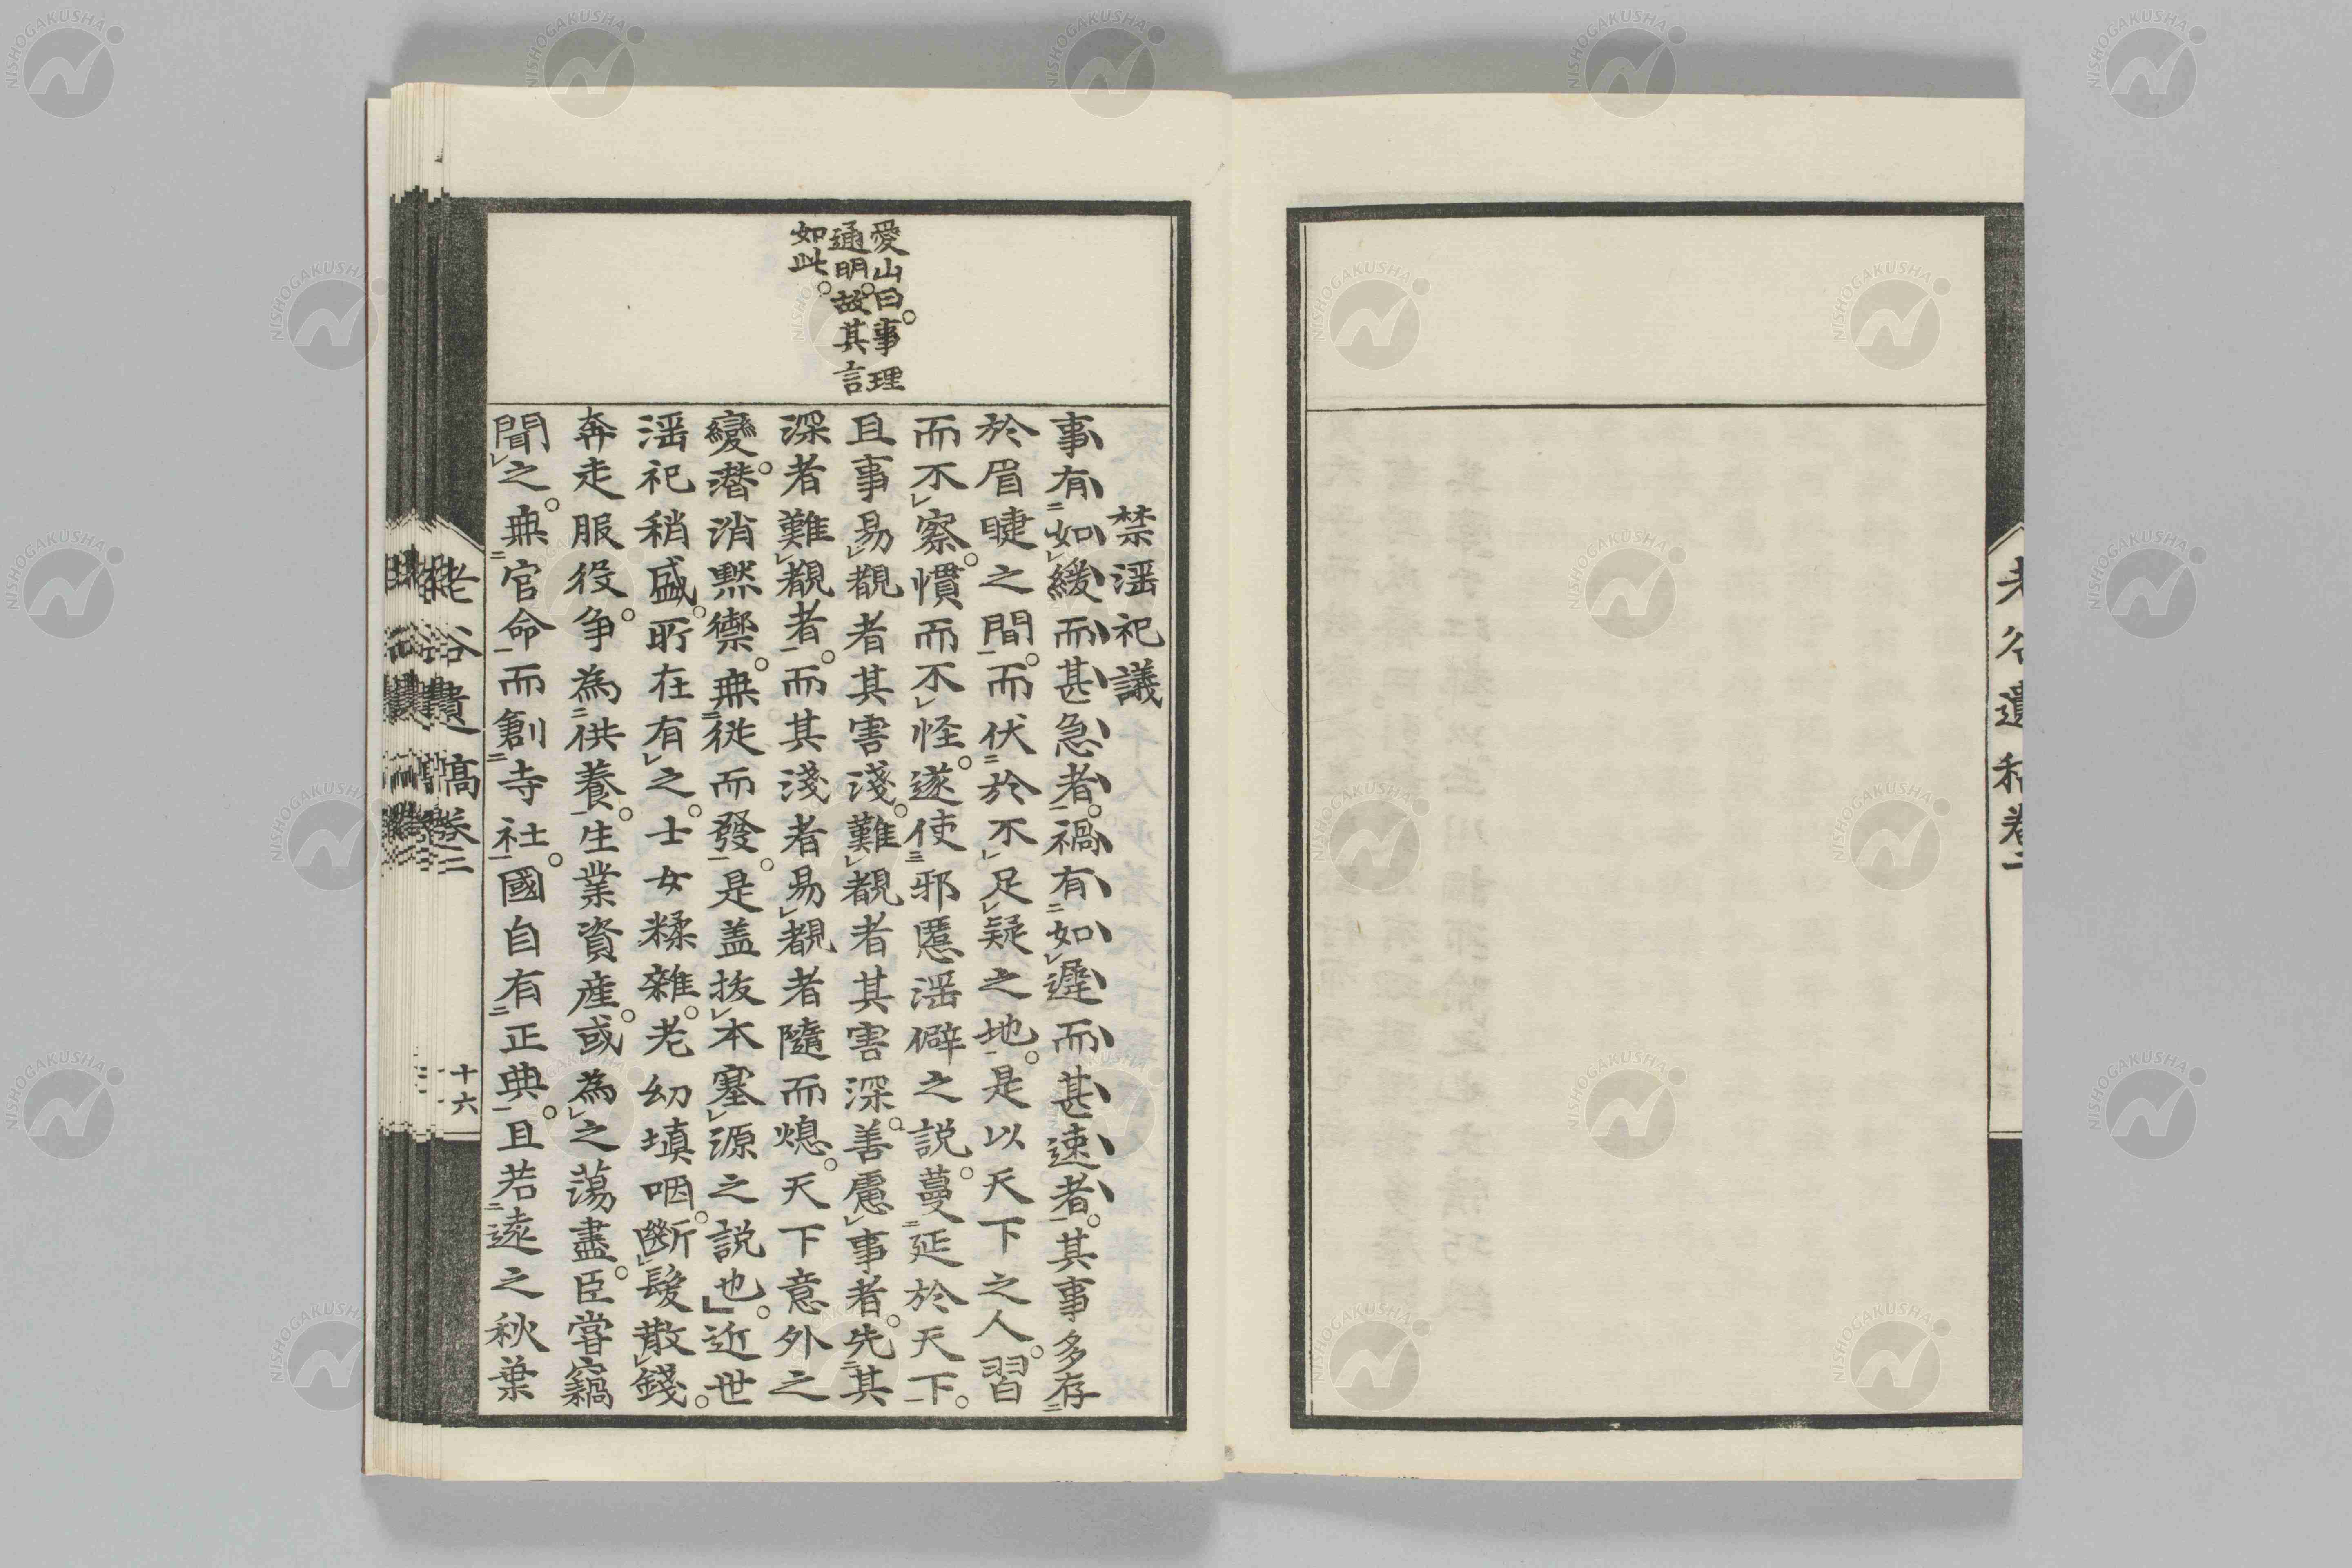 老谷遺稿卷二
愛山曰。事理
通明。故其言
如此。
禁滛祀議
事有如緩而甚急者。禍有如遲而甚速者。其事多存
於眉睫之間。而伏於不足疑之地。是以天下之人。習
而不察。慣而不怪。遂使邪慝滛僻之説。蔓延於天下。
且事易覩者其害淺。難覩者其害深。善慮事者。先其
深者難覩者。而其淺者易覩者隨而熄。天下意外之
變。潜消黙禦。無從而發。是盖拔本塞源之説也。」近世
滛祀稍盛。所在有之。士女糅雜。老幼塡咽。斷髮散錢。
奔走服役。争為供養。生業資産。或為之蕩盡。臣嘗竊
聞之。無官命而創寺社。國自有正典。且若遠之秋葉
老谷遺稿卷二
十六
NISHOGAKUSHA